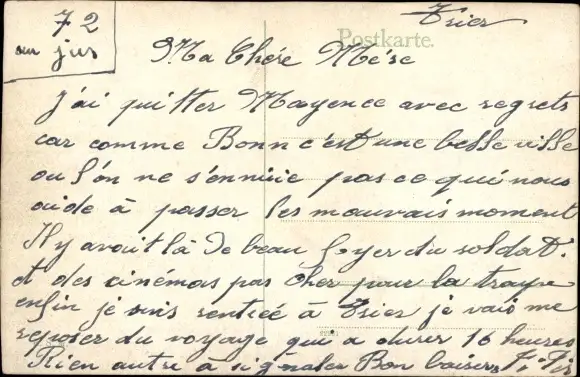 Trier
72
au jus
Postkarte.
Ma Chére Mére
J'ai quitter Mayence avec regrets
car comme Bonn c'est une belle ville
ou l'on ne s'ennuie pas ce qui nous
aide à passer les mauvais moment
Il y avait là de beau foyer du soldat.
et des cinémas pas cher pour la troupe
enfin je suis rentréé à Trier je vais me
reposer du voyage qui a durer 16 heures
Rien autre à signaler Bon baisers